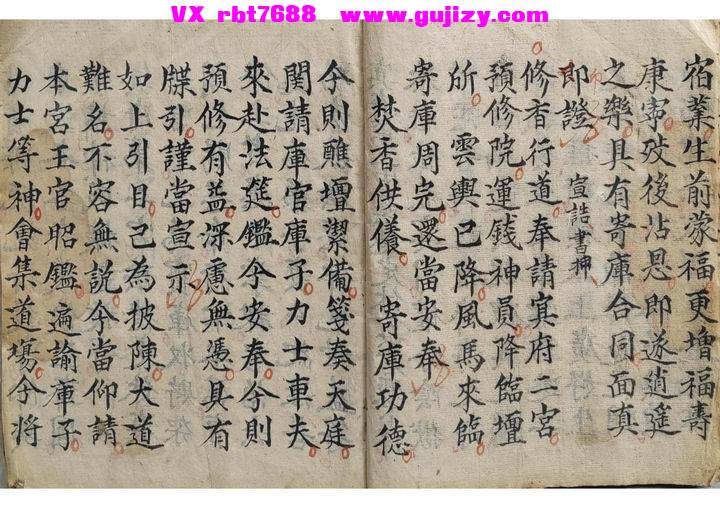 VX rbt7688 www.gujizy.com
宿業生前蒙福更增福壽
康寕殁後沾恩即遂逍遙
之樂具有寄庫合同面真
即證 宣誥書押
修香行道奉請冥府二宮
預修院運錢神員降臨壇
所 雲輿已降風馬來臨
寄庫周完還當安奉
焚香供儀 寄庫功德
今則醮壇潔備箋奏天庭
関請庫官庫子力士車夫
來赴法筵鑑今安奉今則
預修有益深慮無憑具有
牒引謹當宣示
如上引目已為披陳大道
難名不容無説今當仰請
本宮王官昭鑑遍諭庫子
力士等神會集道塲今將